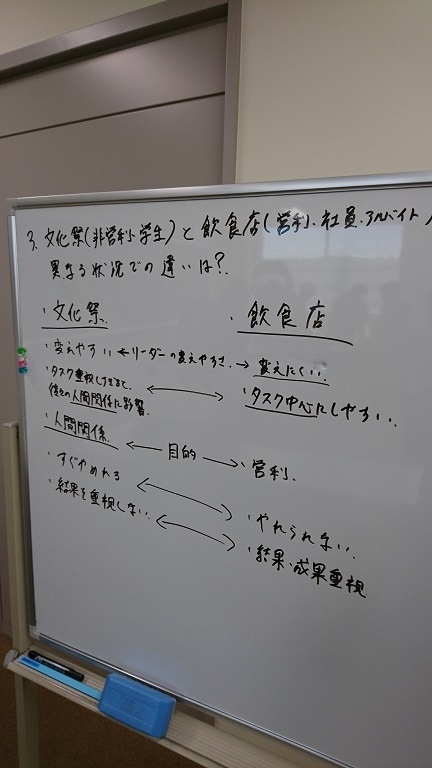 3. 文化祭(非営利・学生)と飲食店(営利・社員・アルバイト)
異なる状況での違いは?
・文化祭
・飲食店
・変えやすい ← リーダーの変えやすさ → 変えにくい.
・タスク重視しすぎると、
後々の人間関係に影響.
↔ ・タスク中心にしやすい.
・人間関係. ← 目的 → ・営利.
・すぐやめれる ↔ ・やれられない.
・結果を重視しない. ↔ ・結果・成果重視